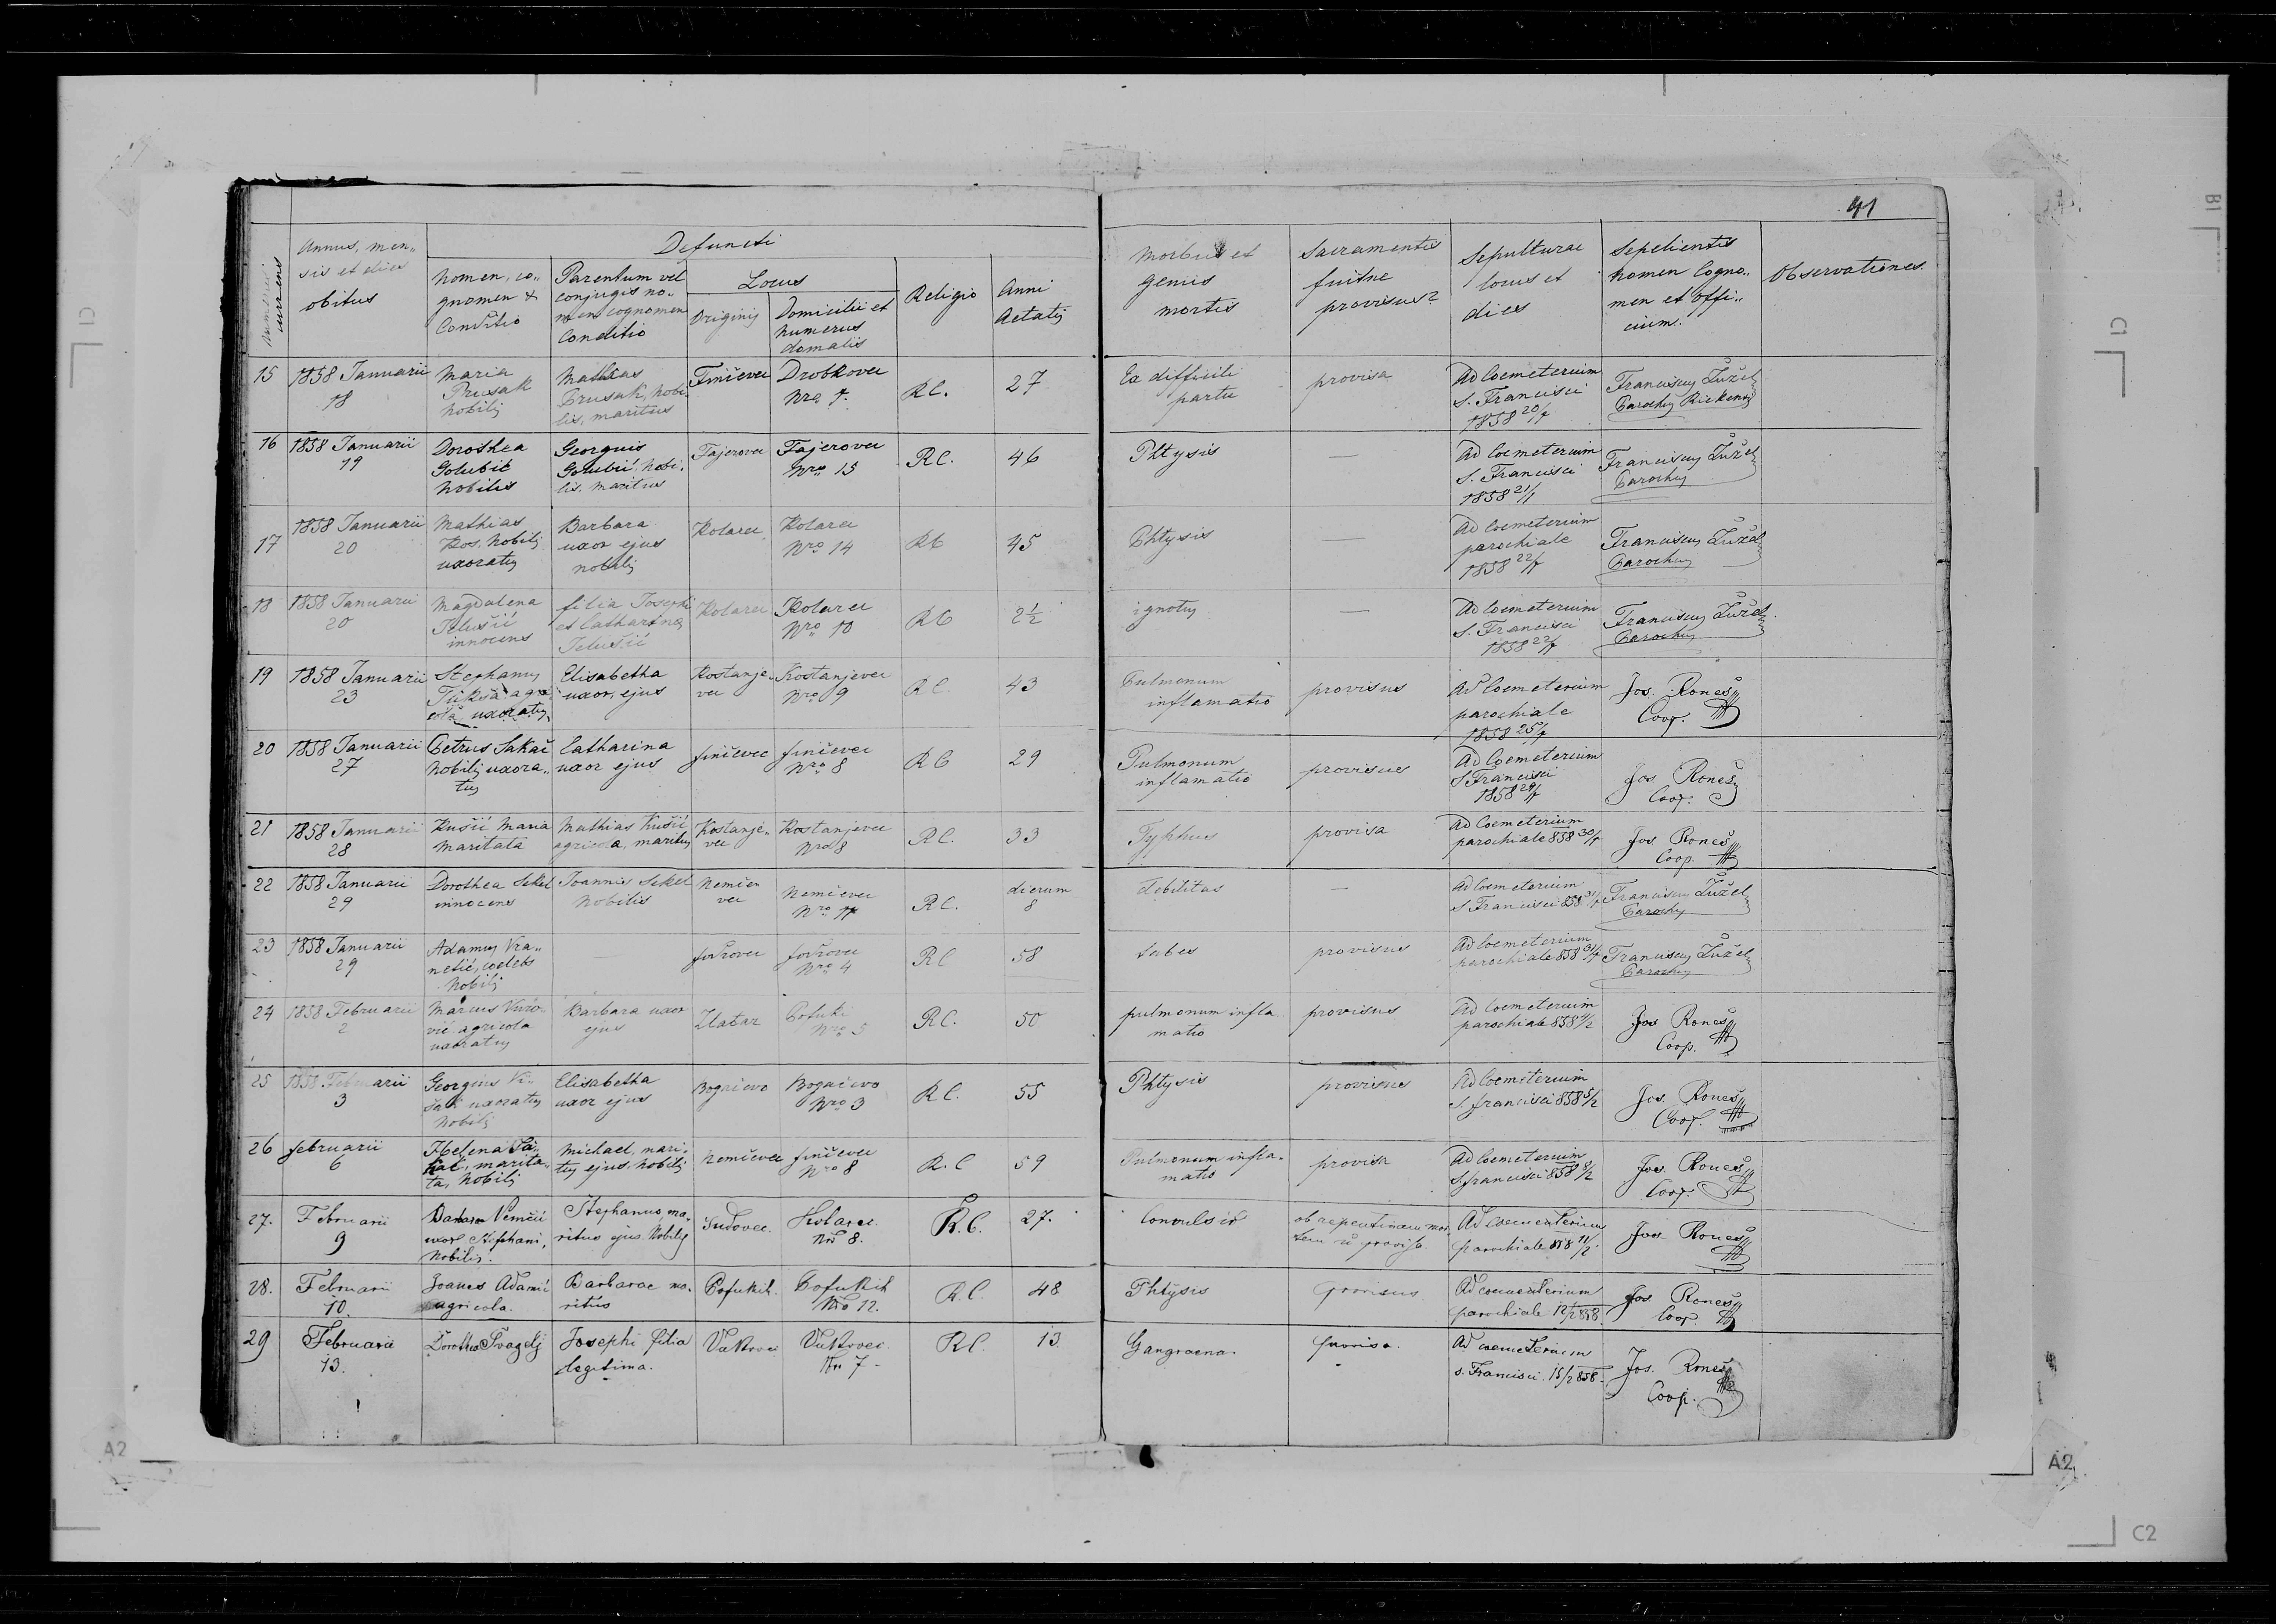 41
Numerus currens
Annus, men„
sis et dies
obitus
Defuncti
Nomen, co„
gnomen &
Conditio
Parentum vel
conjugis no„
men cognomen
Conditio
Locus
Originis
Domicilii et
numerus
domalis
Religio
Anni
Aetatis
Morbus et
genus
mortis
Sacramentis
fuitne
provisus?
Sepulturae
locus et
dies
Sepelientis
Nomen Cogno„
men et offi„
cium.
Observationes.
15
1858 Januarii
18
Maria
Prusak
Nobilis
Mathias
Prusak, Nobi„
lis, maritus
Finičevec
Drobkovec
Nro 7.
RC.
27
Ex difficili
partu
provisa
Ad Coemeterium
S. Francisci
1858 20/1
Franciscus Žužel
Parochus
16
1858 Januarii
19
Dorothea
Golubić
Nobilis
Georgius
Golubić, Nobi„
lis, maritus
Fajerovec
Fajerovec
Nro 15
RC.
46
Phtysis
—
Ad Coemeterium
S. Francisci
1858 21/1
Franciscus Žužel
Parochus
17
1858 Januarii
20
Mathias
Kos, Nobilis
uxoratus
Barbara
uxor ejus
nobilis
Kolarec
Kolarec
Nro 14
RC
45
Phtysis
—
Ad Coemeterium
parochiale
1858 22/1
Franciscus Žužel
Parochus
18
1858 Januarii
20
Magdalena
Jelušić
innocens
filia Josephi
et Catharinae
Jelušić
Kolarec
Kolarec
Nro 10
RC
2½
ignotus
—
Ad Coemeterium
S. Francisci
1858 22/1
Franciscus Žužel
Parochus
19
1858 Januarii
23
Stephanus
agri
cola uxoratus
Elisabetha
uxor, ejus
Kostanje„
vec
Kostanjevec
Nro 9
RC.
43
Pulmonum
inflamatio
provisus
Ad Coemeterium
parochiale
1858 25/1
Jos. Roneš
Coop.
20
1858 Januarii
27
Petrus Sakač
Nobilis uxora„
tus
Catharina
uxor ejus
Finičevec
Finičevec
Nro 8
RC
29
Pulmonum
inflamatio
provisus
Ad Coemeterium
S Francisci
1858 29/1
Jos Roneš
Coop.
21
1858 Januarii
28
Kušić Maria
maritata
Mathias Kušić
agricola, maritus
Kostanje„
vec
Kostanjevec
Nro 8
RC.
33
Typhus
provisa
Ad Coemeterium
parochiale 858 30/1
Jos Roneš
Coop.
22
1858 Januarii
29
Dorothea Sekel
innocens
Joannis Sekel
Nobilis
Nemče
vec
Nemčevec
Nro 11
RC.
dierum
8
debilitas
—
Ad Coemeterium
S Francisci 858 31/1
Franciscus Žužel
Parochus
23
1858 Januarii
29
Adamus Vra„
netić, coelebs
Nobilis
—
fodrovec
fodrovec
Nro 4
RC
58
tabes
provisus
Ad Coemeterium
parochiale 858 31/1
Franciscus Žužel
Parochus
24
1858 Februarii
2
Marcus
agricola
uxoratus
Barbara uxor
ejus
Zlatar
Pofuki
Nro 5
RC.
50
pulmonum infla„
matio
provisus
Ad Coemeterium
parochiale 858 4/2
Jos Roneš
Coop.
25
1858 Februarii
3
Georgius
uxoratus
Nobilis
Elisabetha
uxor ejus
Bogačevo
Bogačevo
Nro 3
RC.
55
Phtysis
provisus
Ad Coemeterium
S. francisci 858 5/2
Jos. Roneš
Coop.
26
februarii
6
Helena Sa„
kač, marita„
ta, Nobilis
Michael, mari„
tus ejus, Nobilis
Nemčevec
finičevec
Nro 8
R.C
59
Pulmonum infla„
matio
provisa
Ad Coemeterium
S. francisci 858 8/2
Jos. Roneš
Coop.
27.
Februarii
9
Barbara Nemčić
uxor Stephani,
Nobilis.
Stephanus, ma„
ritus ejus Nobilis
Sudovec.
Kolarec.
Nro 8.
R.C.
27.
Convulsio
ob repentinam mor„
tem n provisa.
Ad coemeterium
parochiale 858 11/2
Jos Roneš
28.
Februarii
10.
Joanes Adamić
agricola.
Barbarae ma„
ritus
Pofukih.
Pofukih
Nro 12.
R.C.
48
Phtysis
provisus
Ad coemeterium
parochiale 12/2 858.
Jos Roneš
Coop.
29
Februarii
13.
Dorothea Švagelj
Josephi filia
legitima.
Vukovec
Vukovec.
Nro 7.
RC.
13
Gangraena.
provisa.
Ad coemeterium
s. Francisci. 15/2 858.
Jos. Roneš
Coop.
C1
A2
B1
C1
A2
C2